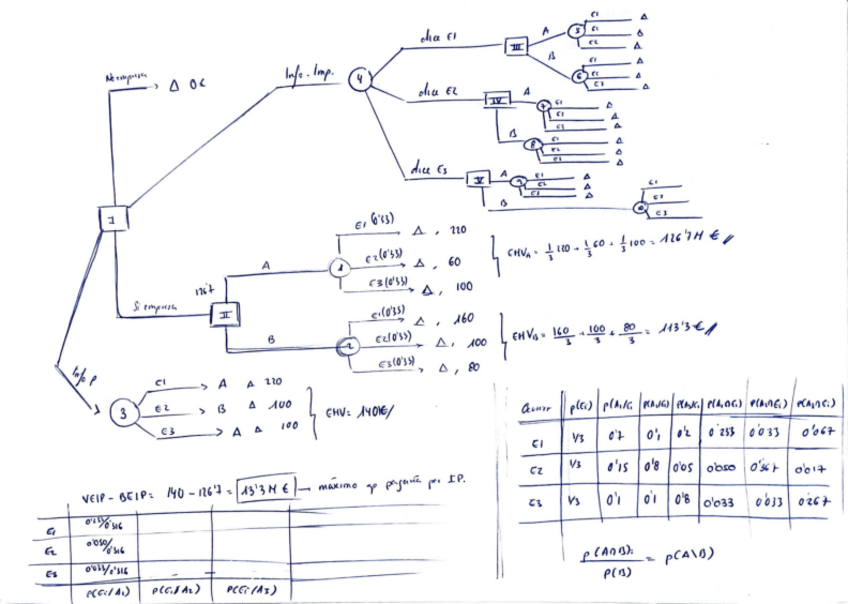 No empresa
Δ 0€
Info. Imp.
4
dice E1
III
A
5
E1 Δ
E1 Δ
E2 Δ
B
6
E1 Δ
E1 Δ
E3 Δ
dice E2
IV
A
7
E1 Δ
E1 Δ
E3 Δ
B
8
E1 Δ
E2 Δ
E3 Δ
dice E3
V
A
9
E1 Δ
E2 Δ
E3 Δ
B
E1
E3
1
Si empresa
126'7
II
A
1
E1 (0'33) Δ, 220
E2 (0'33) Δ, 60
E3 (0'33) Δ, 100
EMVA = 1/3 220 + 1/3 60 + 1/3 100 = 126'7 M €
B
2
E1 (0'33) Δ, 160
E2 (0'33) Δ, 100
E3 (0'33) Δ, 80
EMVB = 160/3 + 100/3 + 80/3 = 113'3 €
Info P
3
E1 A Δ 220
E2 B Δ 100
E3 A Δ 100
EMV = 140€/
VEIP - BEIP = 140 - 126'7 = 13'3 M € → máximo por IP.
E1 0'233/0'316
E2 0'050/0'316
E3 0'033/0'316
P(Ei/A1) P(Ei/A2) P(Ei/A3)
p(Ei) p(A1/Ei p(A2/Ei) p(A3/Ei p(A1∩Ei) p(A2∩Ei) p(A3∩Ei)
E1 1/3 0'7 0'1 0'2 0'233 0'033 0'067
E2 1/3 0'15 0'8 0'05 0'050 0'267 0'017
E3 1/3 0'1 0'1 0'8 0'033 0'033 0'267
p(A∩B)i / p(B) = p(A\B)